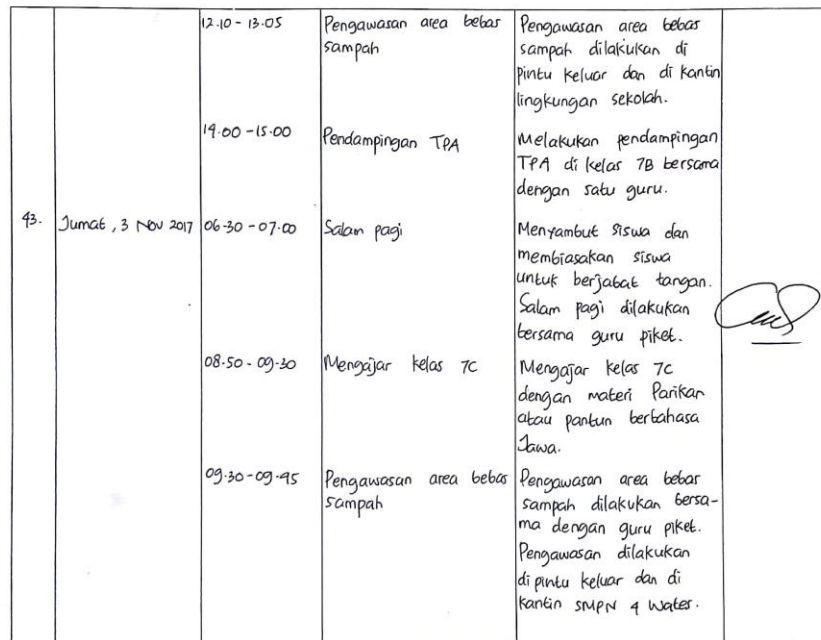 12.10 - 13.05 Pengawasan area bebas Pengawasan area bebas
sampah sampah dilakukan di
pintu keluar dan di kantin
lingkungan sekolah.
14.00 - 15.00 Pendampingan TPA Melakukan pendampingan
TPA di kelas 7B bersama
dengan satu guru.
43. Jumat, 3 Nov 2017 06.30 - 07.00 Salam pagi Menyambut siswa dan
membiasakan siswa
untuk berjabat tangan.
Salam pagi dilakukan
bersama guru piket.
08.50 - 09.30 Mengajar kelas 7C Mengajar kelas 7C
dengan materi Parikan
atau pantun berbahasa
Jawa.
09.30 - 09.45 Pengawasan area bebas Pengawasan area bebas
sampah sampah dilakukan bersa-
ma dengan guru piket.
Pengawasan dilakukan
di pintu keluar dan di
kantin SMPN 4 Wates.